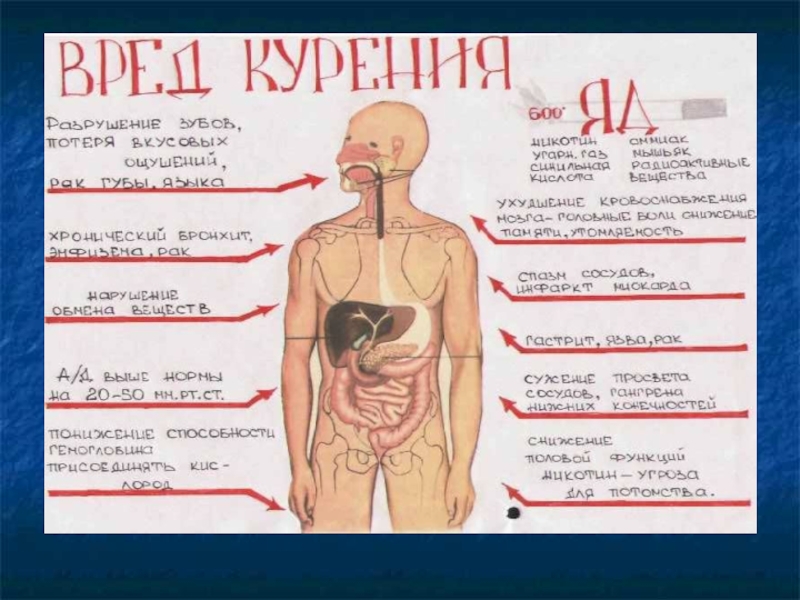 ВРЕД КУРЕНИЯ
РАЗРУШЕНИЕ ЗУБОВ,
ПОТЕРЯ ВКУСОВЫХ
ОЩУШЕНИЙ,
РАК ГУБЫ, ЯЗЫКА
ХРОНИЧЕСКИЙ БРОНХИТ,
ЭМФИЗЕМА, РАК
НАРУШЕНИЕ
ОБМЕНА ВЕЩЕСТВ
А/Д ВЫШЕ НОРМЫ
НА 20-50 ММ.РТ.СТ.
ПОНИЖЕНИЕ СПОСОБНОСТИ
ГЕМОГЛОБИНА
ПРИСОЕДИНЯТЬ КИС-
ЛОРОД
600° ЯД
НИКОТИН АММИАК
УГАРН. ГАЗ МЫШЬЯК
СИНИЛЬНАЯ РАДИОАКТИВНЫЕ
КИСЛОТА ВЕЩЕСТВА
УХУДШЕНИЕ КРОВОСНАБЖЕНИЯ
МОЗГА-ГОЛОВНЫЕ БОЛИ СНИЖЕНИЕ
ПАМЯТИ, УТОМЛЯЕМОСТЬ
СПАЗМ СОСУДОВ,
ИНФАРКТ МИОКАРДА
ГАСТРИТ, ЯЗВА, РАК
СУЖЕНИЕ ПРОСВЕТА
СОСУДОВ, ГАНГРЕНА
НИЖНИХ КОНЕЧНОСТЕЙ
СНИЖЕНИЕ
ПОЛОВОЙ ФУНКЦИЙ
НИКОТИН - УГРОЗА
ДЛЯ ПОТОМСТВА.